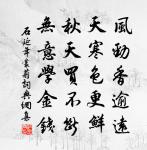 風勁香逾遠
天寒色更鮮
秋天買不斷
無意學金錢
石延年叢菊詞典網集